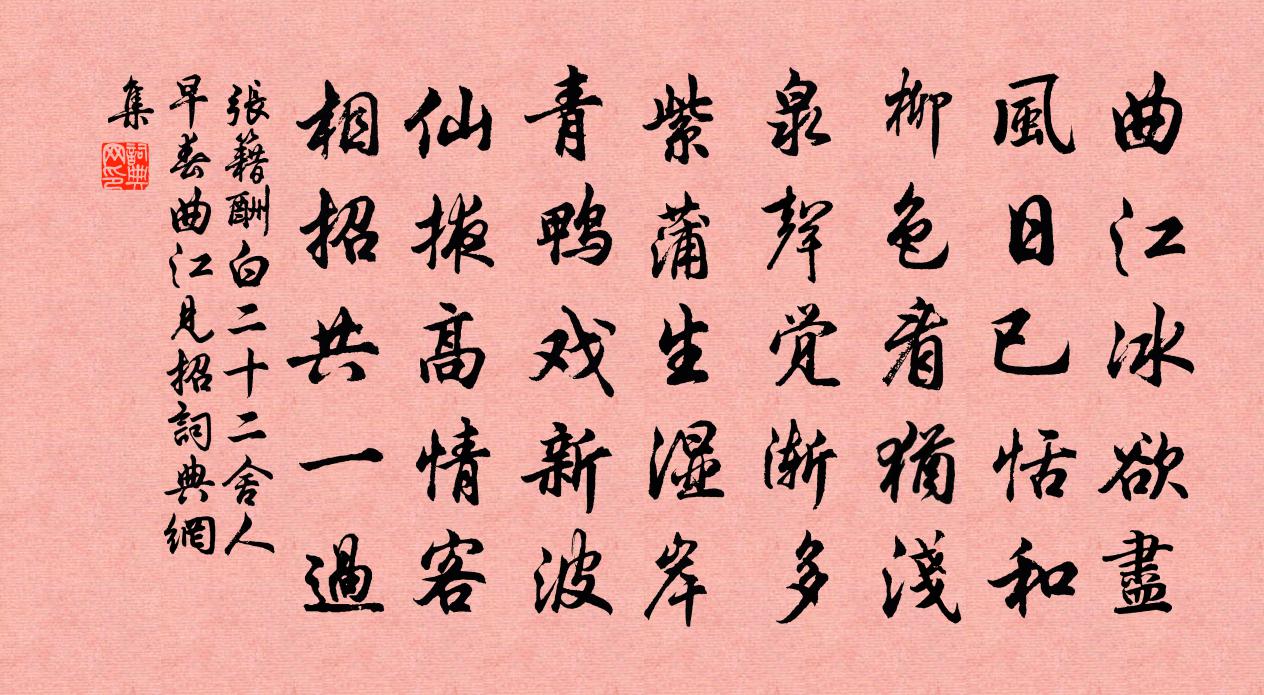 曲江冰欲盡
風日已恬和
柳色看猶淺
泉聲覺漸多
紫蒲生湿岸
青鸭戏新波
仙掖高情客
相招共一過
張籍酬白二十二舍人
早春曲江見招詞典網
集
詞典
网印